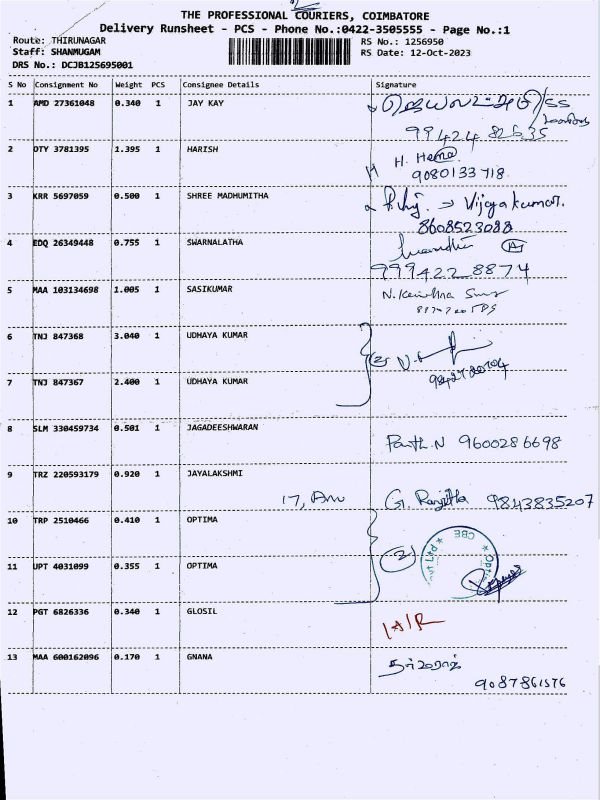 THE PROFESSIONAL COURIERS, COIMBATORE
Delivery Runsheet - PCS - Phone No.:0422-3505555 - Page No.:1
Route: THIRUNAGAR
Staff: SHANMUGAM
DRS No.: DCJB125695001
RS No.: 1256950
RS Date: 12-Oct-2023
S No Consignment No Weight PCS Consignee Details Signature
1 AMD 27361048 0.340 1 JAY KAY
2 DTY 3781395 1.395 1 HARISH H. Hema
9080133718
3 KRR 5697059 0.500 1 SHREE MADHUMITHA Vijayakumar.
8608523088
4 EDQ 26349448 0.755 1 SWARNALATHA
999422 8874
5 MAA 103134698 1.005 1 SASIKUMAR
6 TNJ 847368 3.040 1 UDHAYA KUMAR
7 TNJ 847367 2.400 1 UDHAYA KUMAR
8 SLM 330459734 0.501 1 JAGADEESHWARAN
9600286698
9 TRZ 220593179 0.920 1 JAYALAKSHMI
G. Ranjitha 9843835207
10 TRP 2510466 0.410 1 OPTIMA
CBE
11 UPT 4031099 0.355 1 OPTIMA 2
12 PGT 6826336 0.340 1 GLOSIL
13 MAA 600162096 0.170 1 GNANA
9087861576